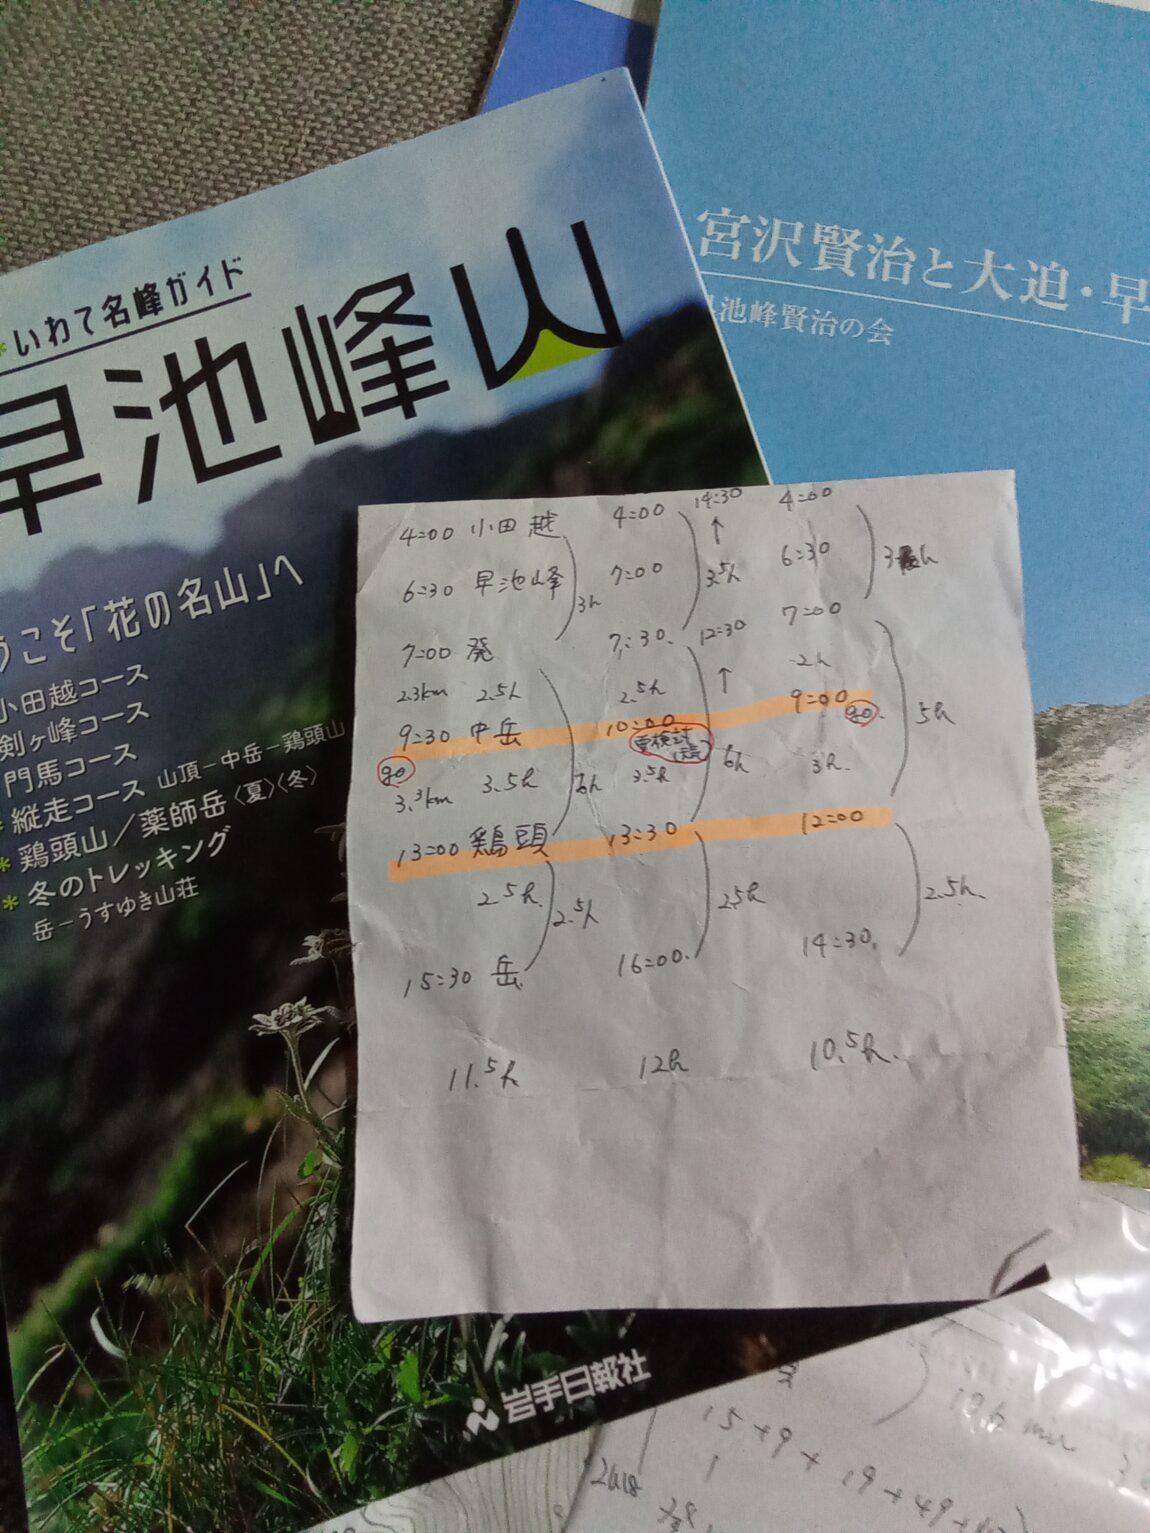 いわて名峰ガイド
早池峰山
うこそ「花の名山」へ
小田越コース
剣ヶ峰コース
門馬コース
縦走コース 山頂－中岳－鶏頭山
* 鶏頭山／薬師岳〈夏〉〈冬〉
* 冬のトレッキング
岳－うすゆき山荘
岩手日報社
宮沢賢治と大迫・早
池峰賢治の会
4=00 小田越 4=00 14=30 4=00
↑
6=30 早池峰 3h 7=00 3.5h 6=30 3 h
7=00 発 7=30. 12=30 7=00
2.3km 2.5h 2.5h ↑ 2h
9=30 中岳 10=00 9=00 go. 5h
go 天気
3.3km 3.5h 6h 3.5h 6h 3h.
13=00 鶏頭 13=30 12=00
2.5h. 2.5h 2.5h 2.5h.
15=30 岳. 16=00. 14=30.
11.5h 12h 10.5h.
19.6 min
15+9+19+49+